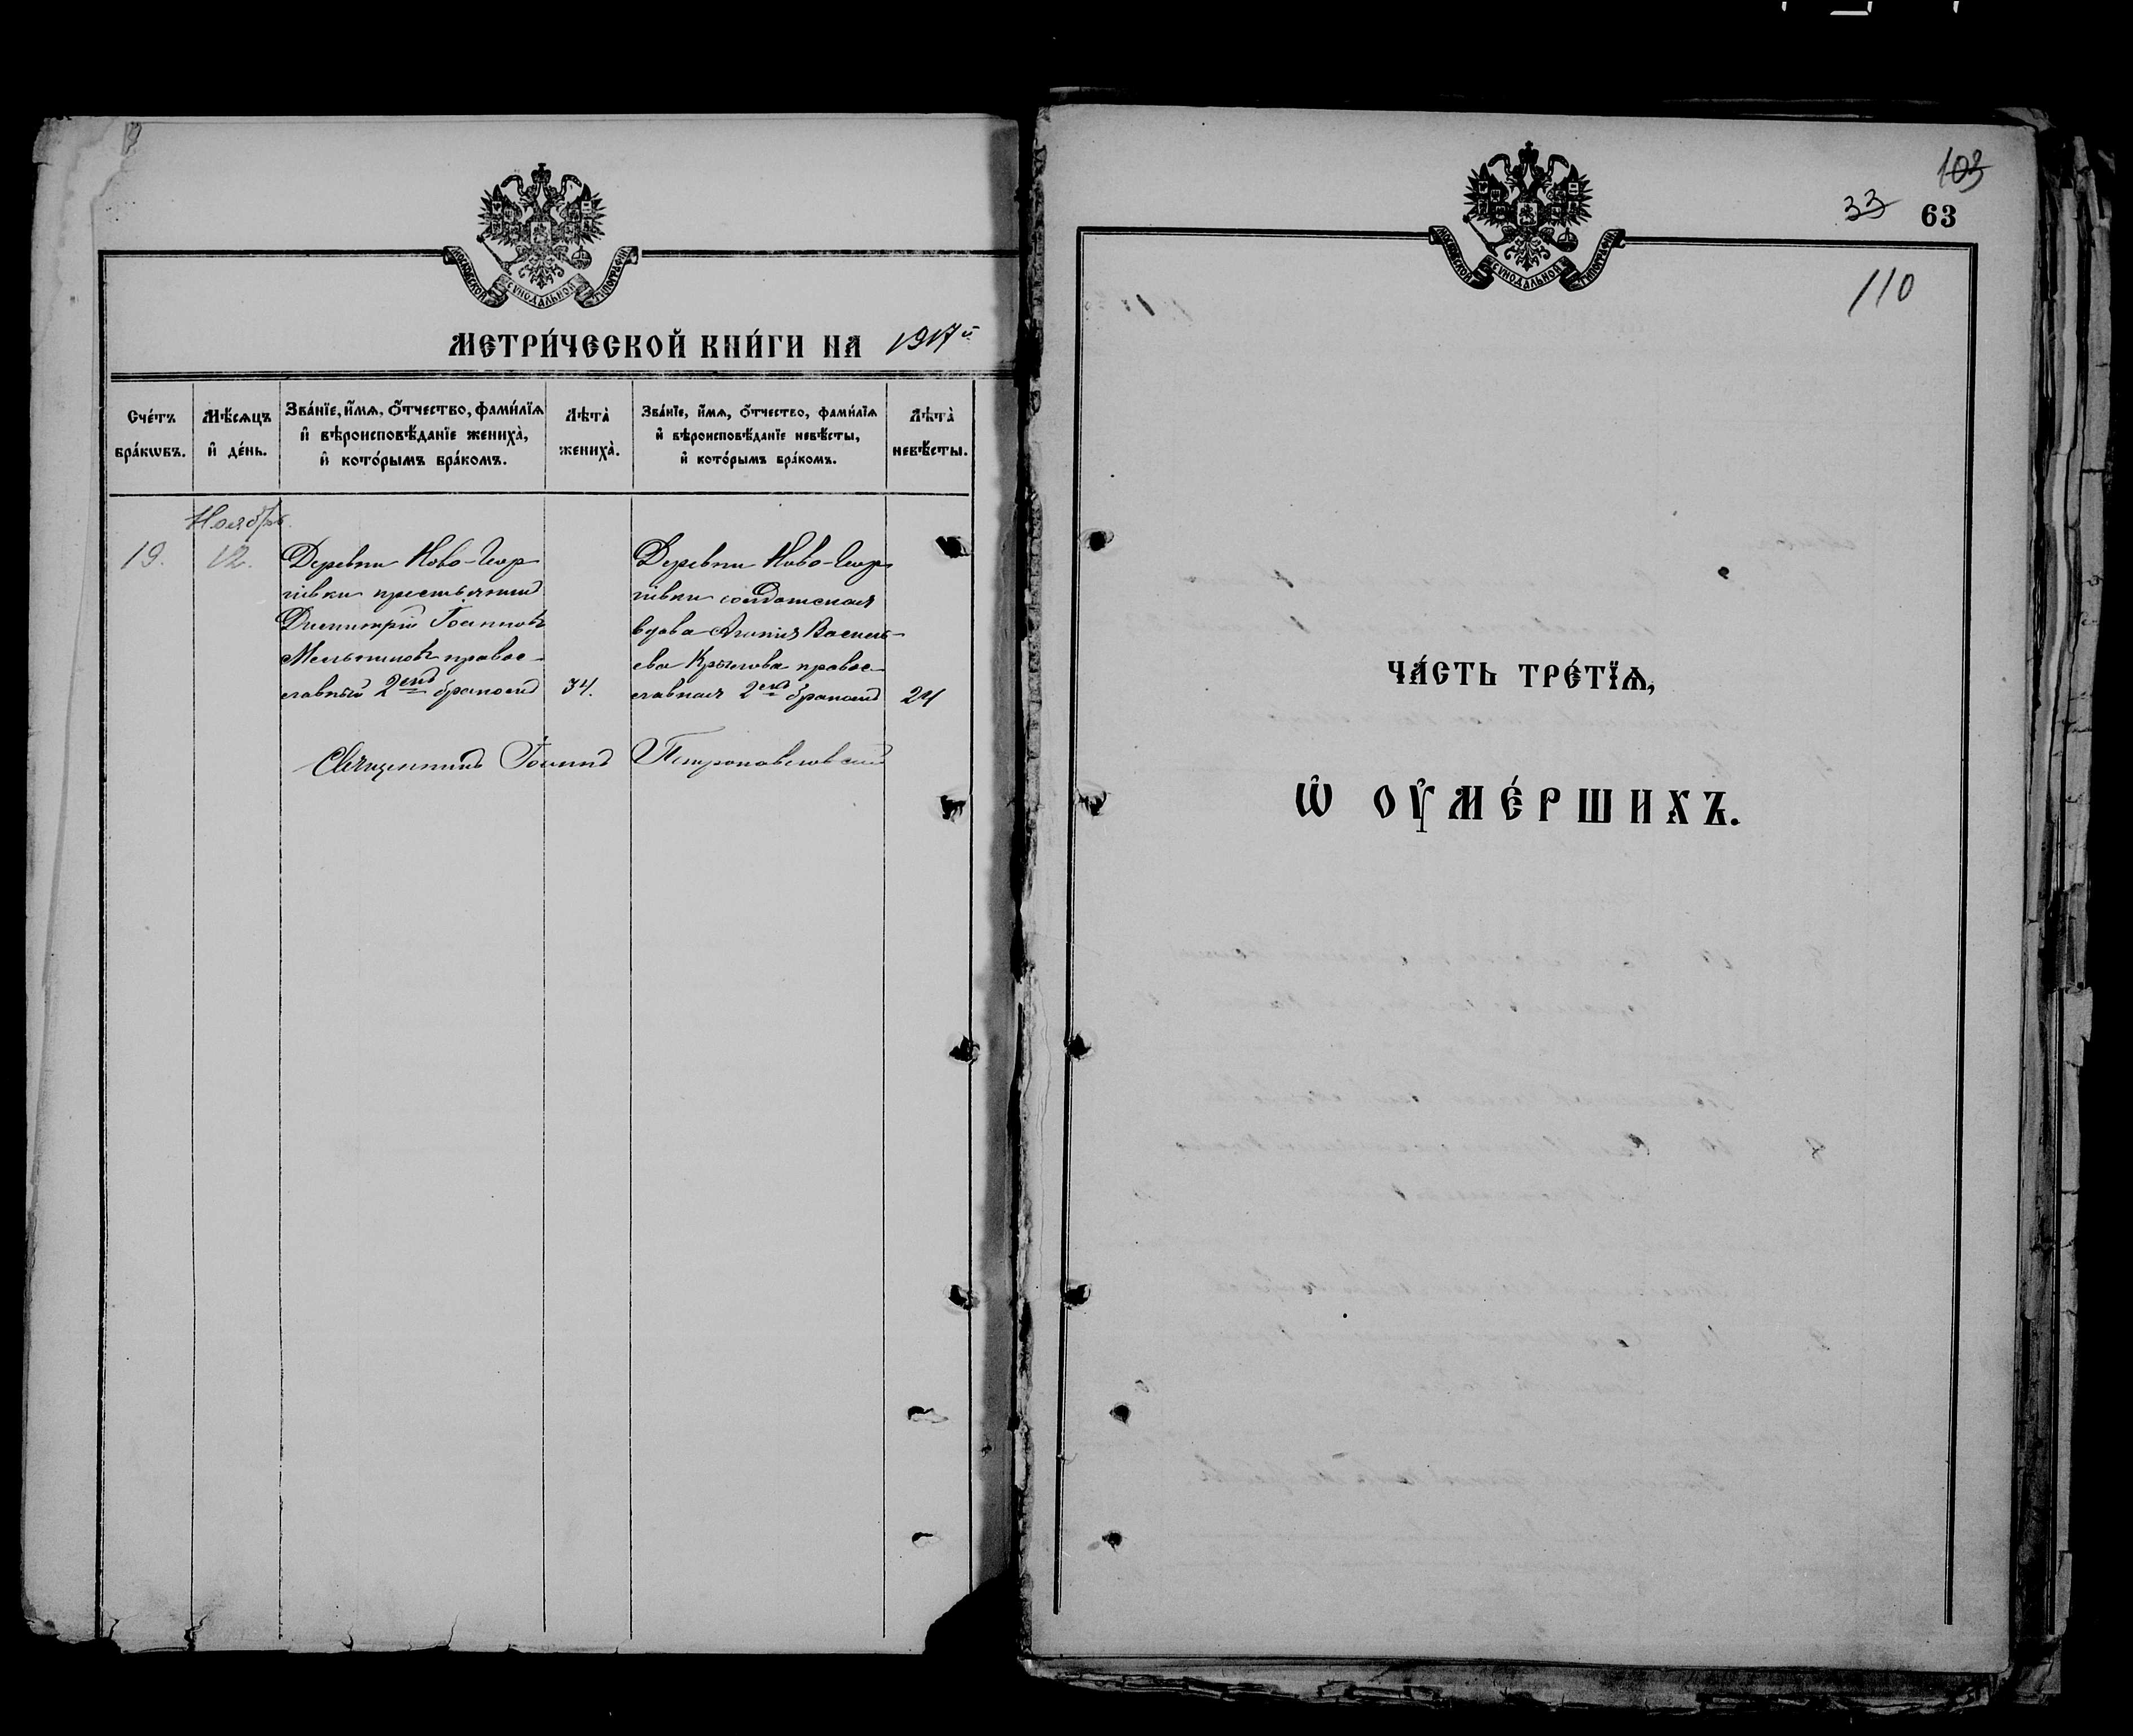 МОСКОВСКОЙ СѴНОДАЛЬНОЙ ТИПОГРАФІИ
МЕТРИ́ЧЕСКОЙ КНИ́ГИ НА 1917й
Сче́тъ бра́кѡвъ.
Мѣ́сѧцъ и҆ де́нь.
Зва́нїе, и҆́мѧ, ѻ҆́тчество, фами́лїѧ
и҆ вѣроисповѣ́данїе жениха̀,
и҆ кото́рымъ бра́комъ.
Лѣта̀ жениха̀.
Зва́нїе, и҆́мѧ, ѻ҆́тчество, фами́лїѧ
и҆ вѣроисповѣ́данїе невѣ́сты,
и҆ кото́рымъ бра́комъ.
Лѣта̀ невѣ́сты.
Ноябрь.
19.
12.
Деревни Ново-Геор-
гіевки крестьянинъ
Димитрій Іоанновъ
Мельниковъ правос-
славный 2емъ бракомъ
34.
Деревни Ново-Геор-
гіевки солдатская
вдова Агапія Василь-
ева Крылова правос-
славная 2емъ бракомъ
24
Священникъ Іоаннъ Петропавловскій
103
33 63
МОСКОВСКОЙ СѴНОДАЛЬНОЙ ТИПОГРАФІИ
110
ЧА́СТЬ ТРЕ́ТЇѦ,
Ѡ҆ ОУ҆МЕ́РШИХЪ.